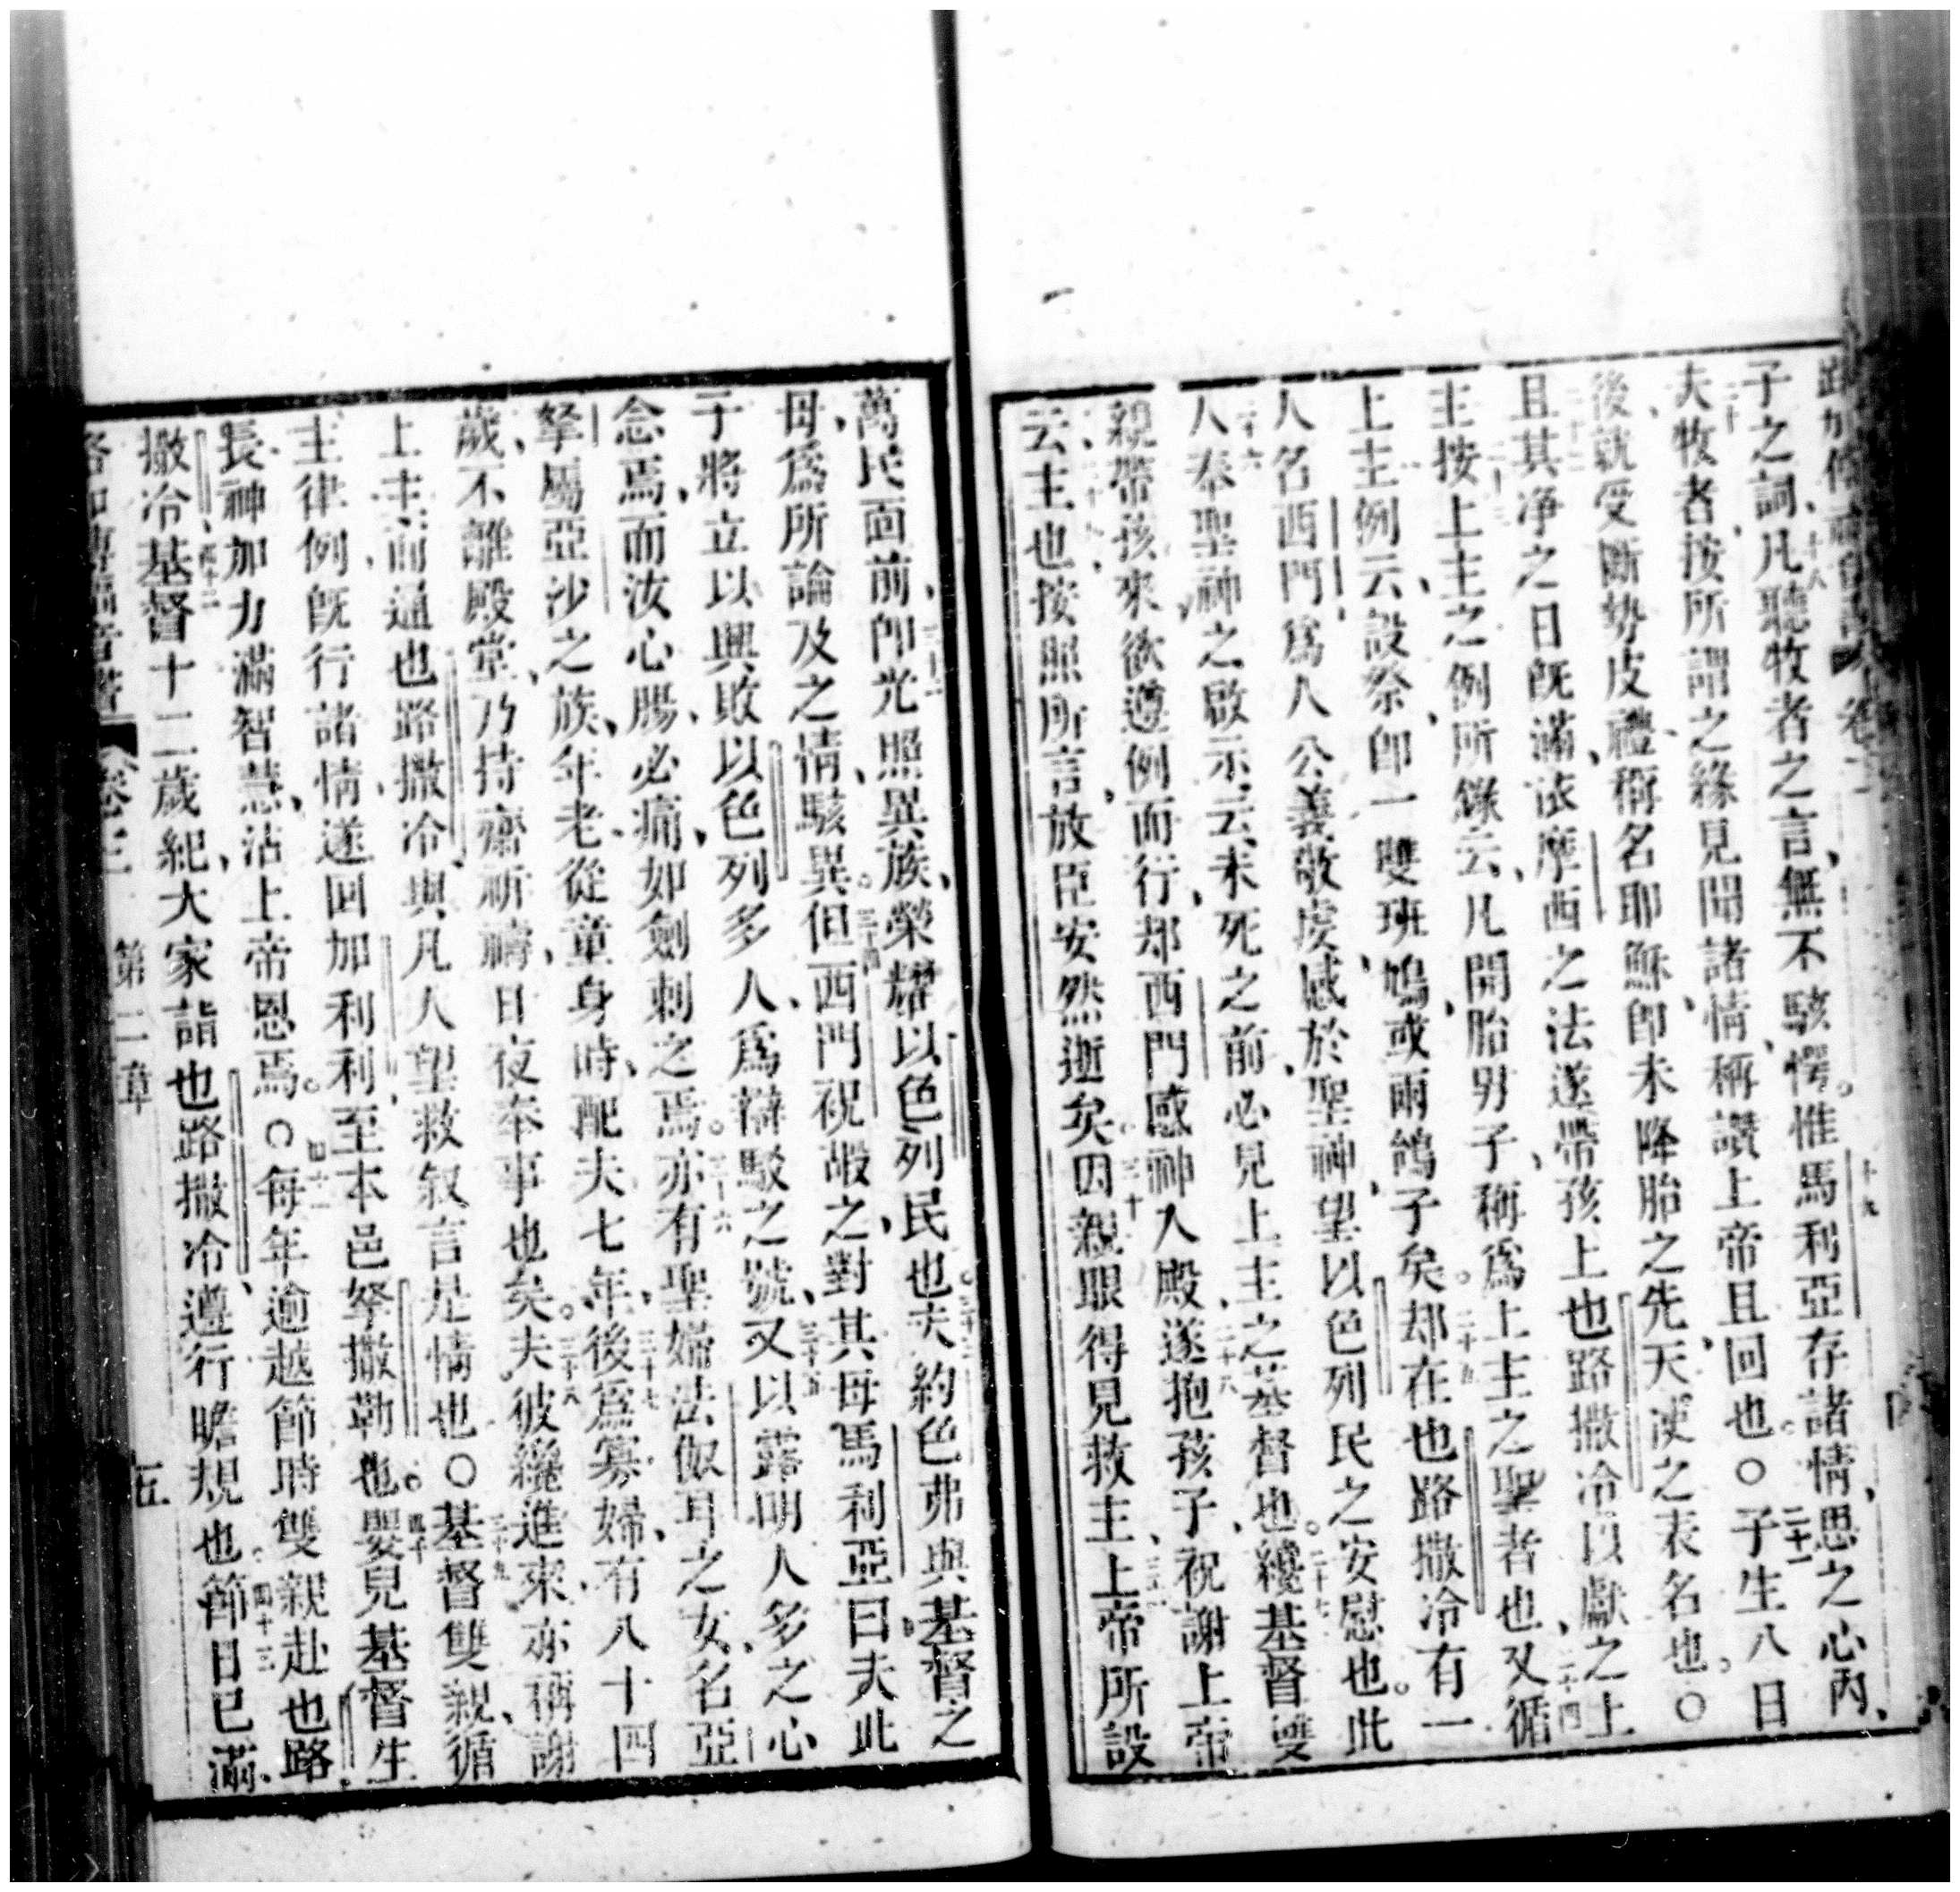 路加傳福音書 卷三
子之詞、十八凡聽牧者之言、無不駭愕。十九惟馬利亞存諸情、思之心內、
二十夫牧者、按所謂之緣見聞諸情、稱讚上帝且回也。○二十一子生八日
後、就受斷勢皮禮、稱名耶穌、卽未降胎之先、天使之表名也。○
二十二且其淨之日旣滿、依摩西之法、遂帶孩上也路撒冷、以獻之上
主、二十三按上主之例所錄云、凡開胎男子、稱爲上主之聖者也、二十四又循
上主例云、設祭、卽一雙班鳩、或兩鴿子矣。二十五却在也路撒冷有一
人名西門、爲人公義敬虔、感於聖神、望以色列民之安慰也。此
人二十六奉聖神之啟示云、未死之前、必見上主之基督也。二十七纔基督雙
親帶孩來、欲遵例而行、却西門感神入殿、二十八遂抱孩子、祝謝上帝
云、二十九主也、按照所言、放臣安然逝矣、三十因親眼得見救主、三十一上帝所設
萬民面前、三十二卽光照異族、榮耀以色列民也。三十三夫約色弗與基督之
母、爲所論及之情、駭異。三十四但西門祝嘏之、對其母馬利亞曰、夫此
子將立以興敗以色列多人、爲辯駁之號、三十五又以露明人多之心
念焉、而汝心腸、必痛、如劍刺之焉。三十六亦有聖婦法伮耳之女、名亞
拏、屬亞沙之族、年老、從童身時、配夫七年、三十七後爲寡婦、有八十四
歲、不離殿堂、乃持齋祈禱、日夜奉事也矣。三十八夫彼纔進來、亦稱謝
上主、而通也路撒冷、與凡人望救叙言是情也。○三十九基督雙親、循
主律例、旣行諸情、遂回加利利、至本邑拏撒勒也。四十嬰兒基督生
長、神加力滿智慧、沾上帝恩焉。○四十一每年逾越節時、雙親赴也路
撒冷、四十二基督十二歲紀、大家詣也路撒冷、遵行瞻規也、四十三節日已滿、
路加傳福音書 卷三 第二章 五